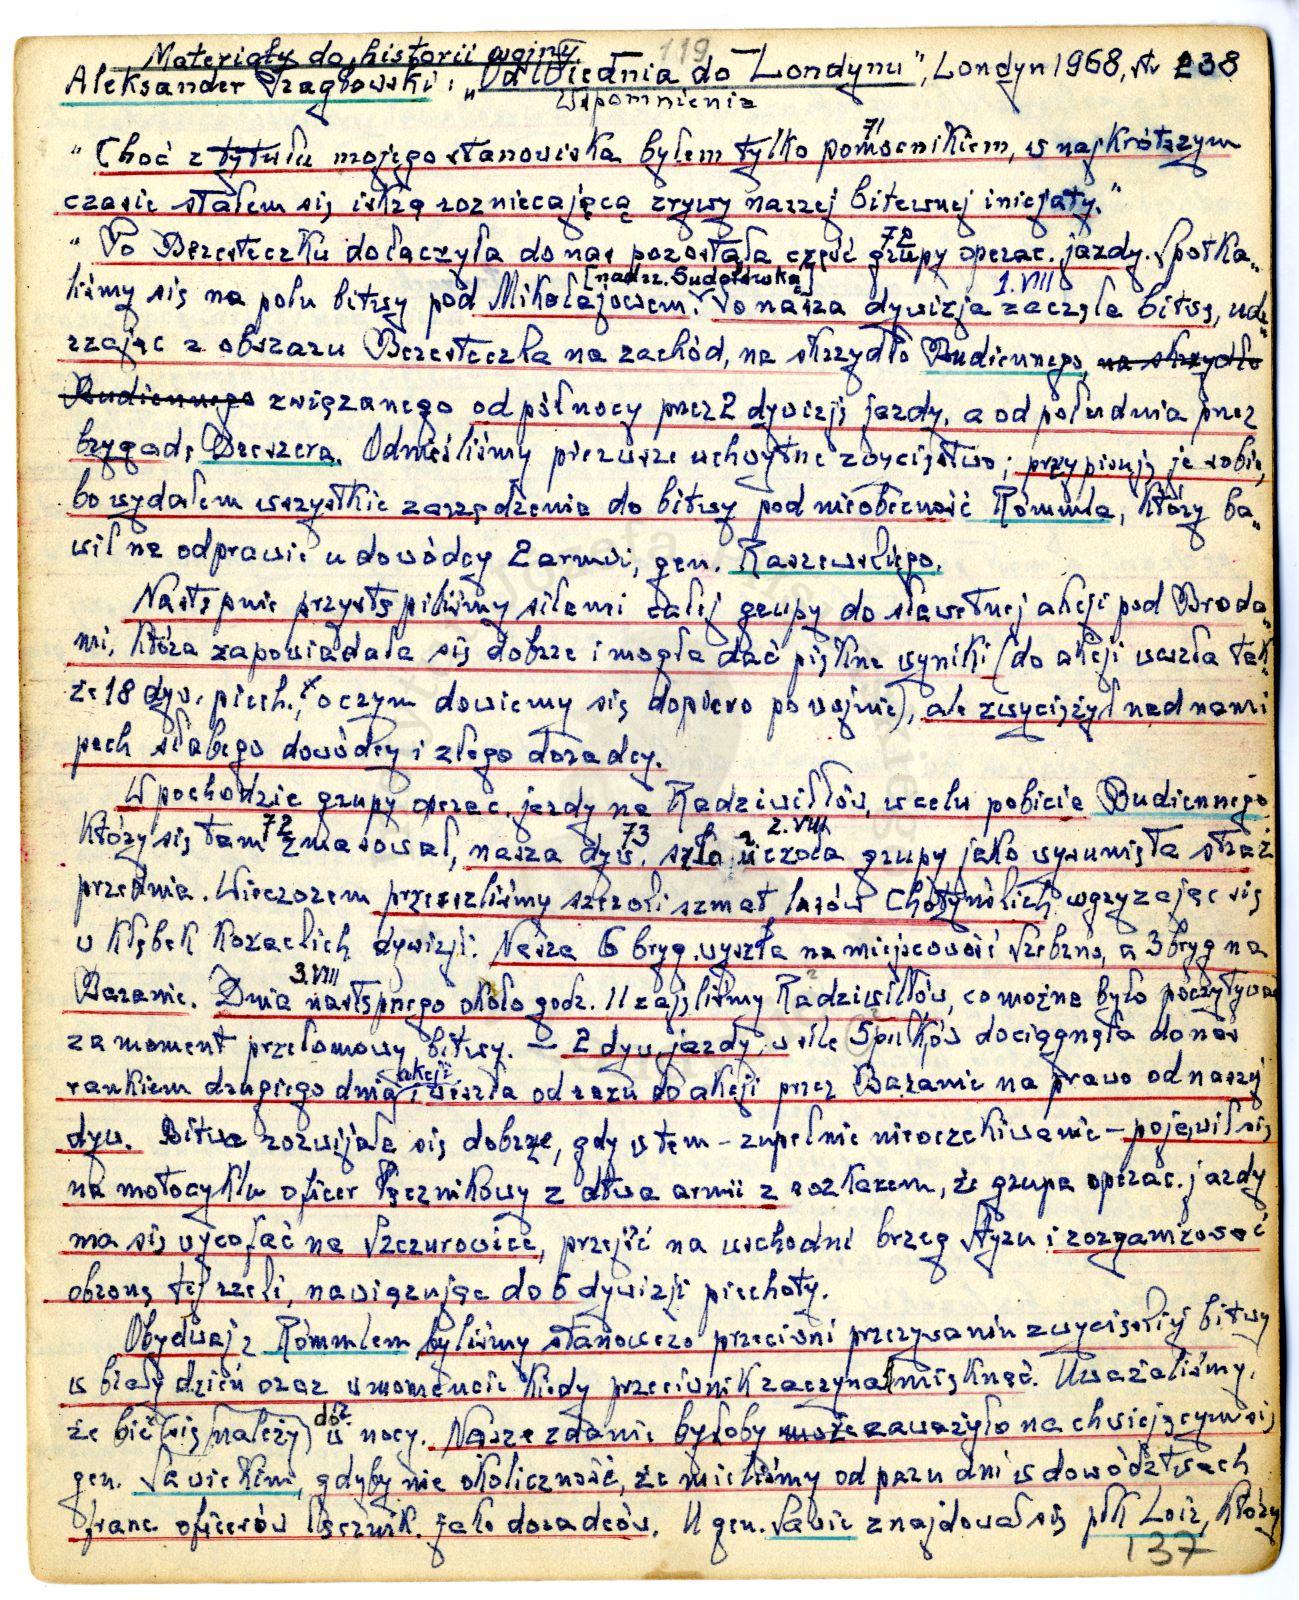 Materiały do historii wojny. 119
Aleksander Pragłowski: „Od Wiednia do Londynu", Londyn 1968, str 238
Wspomnienia
71
"Choć z tytułu mojego stanowiska byłem tylko pomocnikiem, w najkrótszym
czasie stałem się iskrą rozniecającą zrywy naszej bitewnej inicjaty."
72
"Po Beresteczku dołączyła do nas pozostała część grupy operac. jazdy. Spotka„
[nadrz. Sudołówką] 1.VIII
liśmy się na polu bitwy pod Mikołajowem. To nasza dywizja zaczęła bitwę, ude„
rzając z obszaru Beresteczka na zachód, na skrzydło Budiennego, na skrzydło
Budiennego związanego od północy przez 2 dywizję jazdy, a od południa przez
brygadę Dreszera. Odnieśliśmy pierwsze uchwytne zwycięstwo; przypisuję je sobie,
bo wydałem wszystkie zarządzenia do bitwy pod nieobecność Rómmla, który ba„
wił na odprawie u dowódcy 2 armii, gen. Raszewskiego.
Następnie przystąpiliśmy siłami całej grupy do sławetnej akcji pod Broda„
mi, która zapowiadała się dobrze i mogła dać piękne wyniki (do akcji weszła tak„
że 18 dyw. piech., o czym dowiemy się dopiero po wojnie), ale zwyciężył nad nami
pech słabego dowódcy i złego doradcy.
W pochodzie grupy operac. jazdy na Radziwiłłów, w celu pobicia Budiennego,
72 73 2.VIII
który się tam zmasował, nasza dyw. szła u czoła grupy jako wysunięta straż
przednia. Wieczorem przeszliśmy szeroki szmat lasów Chotyńskich wgryzając się
w kłębek kozackich dywizji. Nasza 6 bryg. wyszła na miejscowość Srebrno, a 3 bryg na
3.VIII
Baranie. Dnia następnego około godz. 11 zajęliśmy Radziwiłłów, co można było poczytywać
za moment przełomowy bitwy. – 2 dyw. jazdy w sile 5 pułków dociągnęła do nas
akcji
rankiem drugiego dnia i weszła od razu do akcji przez Baranie na prawo od naszej
dyw. Bitwa rozwijała się dobrze, gdy w tem – zupełnie nieoczekiwanie – pojawił się
na motocyklu oficer łącznikowy z dtwa armii z rozkazem, że grupa operac. jazdy
ma się wycofać na Szczurowice, przejść na wschodni brzeg Styru i zorganizować
obronę tej rzeki, nawiązując do 6 dywizji piechoty.
Obydwaj z Rómmlem byliśmy stanowczo przeciwni przerywaniu zwycięskiej bitwy
w biały dzień oraz w momencie kiedy przeciwnik zaczynał mięknąć. Uważaliśmy,
do
że bić (się) należy w nocy. Nasze zdanie byłoby może zaważyło na chwiejącym się
gen. Sawickim, gdyby nie okoliczność, że mieliśmy od paru dni w dowództwach
franc oficerów łącznik. jako doradców. U gen. Sawic znajdował się płk Loir, który
137